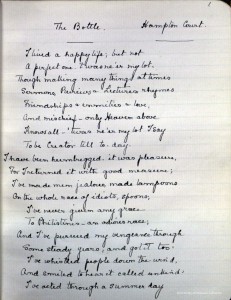 The Bottle. Hampton Court.
I lived a happy life; but not
A perfect one 'twas ne'er my lot.
Though making many things at times
Sermons Reviews & Lectures rhymes
Friendships & enmities & love,
And mischief - only Heaven above
Knows all - 'twas ne'er my lot I say
To be Creator till to-day.
I have been humbugged: it was pleasure,
For I returned it with good measure;
I've made men jealous, made lampoons
On the whole race of idiots, spoons;
I've never given any grace
To Philistines an adverse race;
And I've pursued my vengeance through
Some steady years, and got it too.
I've whistled people down the wind,
And smiled to hear it called unkind;
I've acted through a summer day